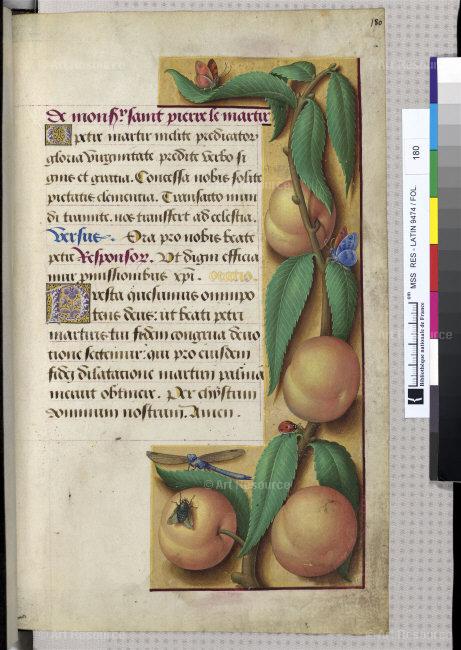 180
De monss.r saint pierre le martir
Petre martir inclite predicator
gloria Virginitate predite verbo si
gnis et gratia. Concessa nobis solite
pietatis clementia. Transacto mun
di tramite. nos transfert ad celestia.
Versus. Ora pro nobis beate
petre Responsor. Ut digni efficia
mur pmissionibus xpi. oratio.
Presta quesumus omnipo
tens deus: ut beati petri
martiris tui fidem congrua deuo
tione sectemur: qui pro eiusdem
fidei dilatatione martirii palmā
meruit obtinere. Per christum
dominum nostrum. Amen.
180
MSS RES - LATIN 9474 / FOL.
cm
Bibliothèque nationale de France
© Art Resource
© Art Resource
© Art Resource
© Art Resource